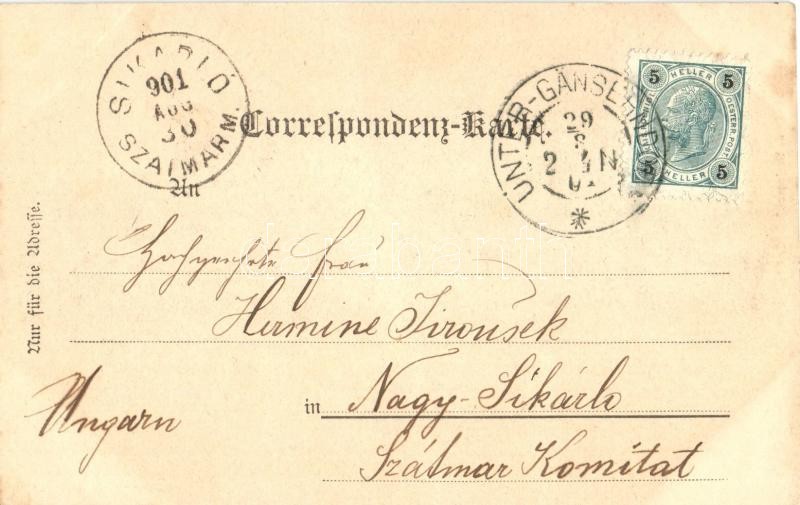 SIKARLÓ
901
AUG
30
SZATMÁRM.
Correspondenz-Karte.
UNTER-GÄNSERND
29
8
2 N
01
*
5 HELLER 5
OESTERR. POST.
5 HELLER 5
An
Nur für die Adresse.
Hochgeehrte Frau
Hermine Jirousek
in Nagy-Sikárló
Ungarn
Szátmar Komitat